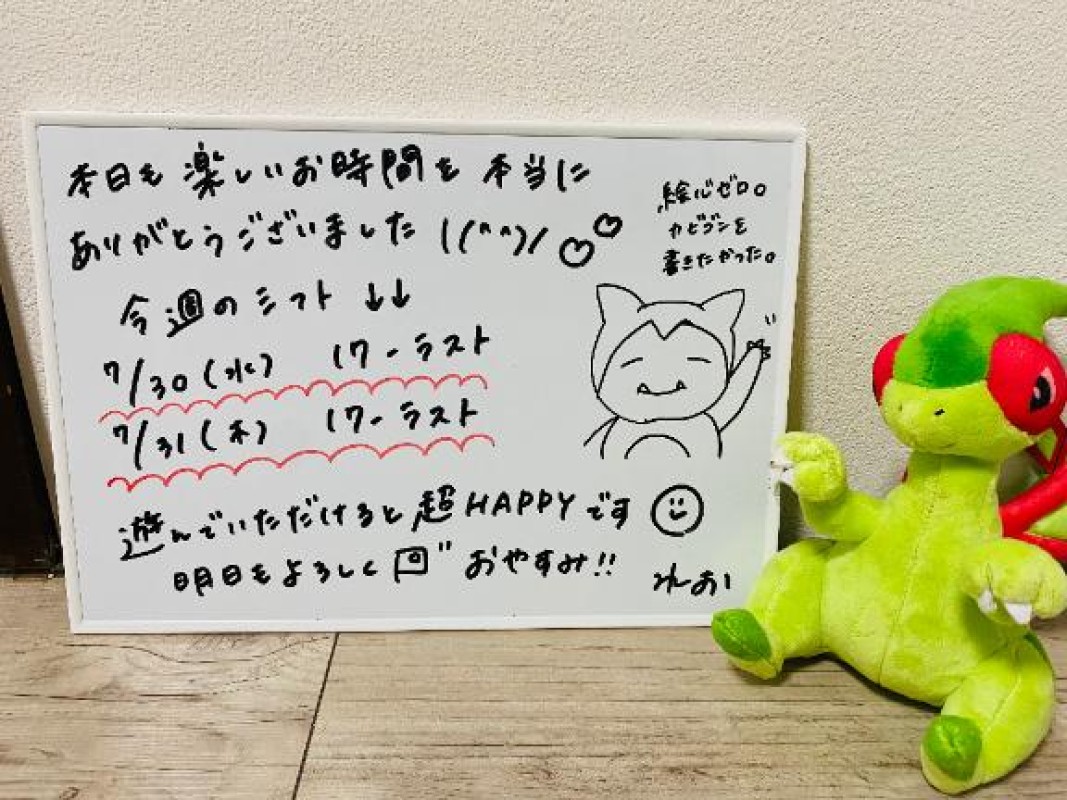 本日も楽しいお時間を本当に
ありがとうございました \(^^)/ ♡♡
今週のシフト ↓↓
7/30(水) 17-ラスト
7/31(木) 17-ラスト
遊んでいただけると超HAPPYです
明日もよろしく回" おやすみ!!
絵心ゼロ。
カビゴンを
書きたかった。
れあい